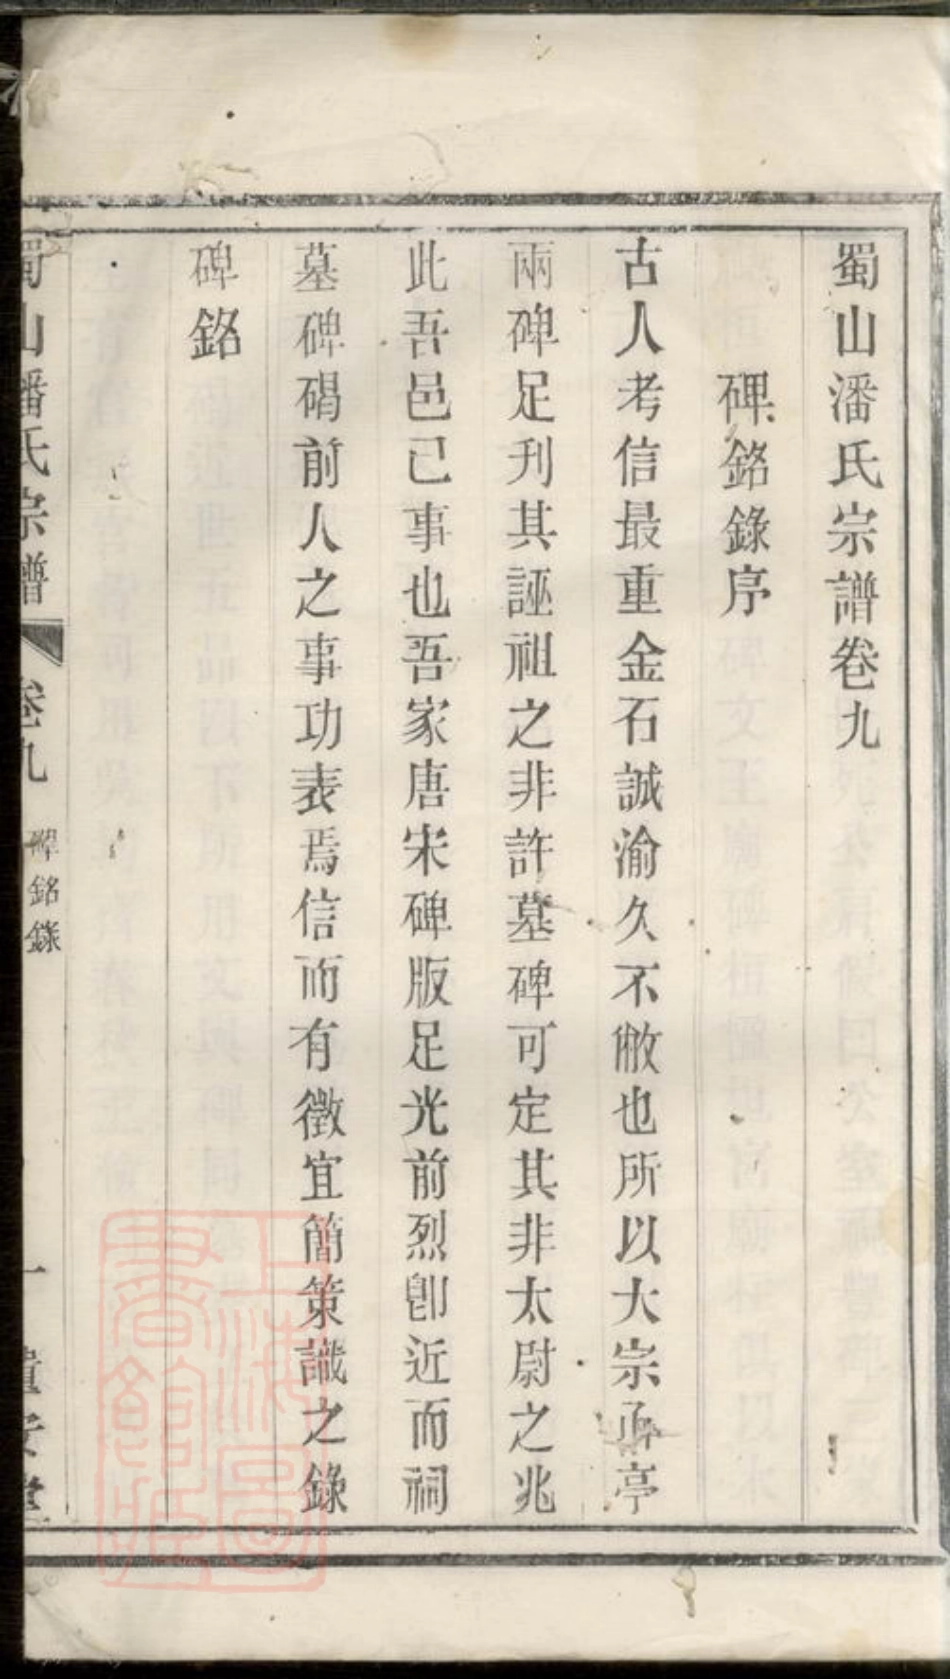 蜀山潘氏宗譜卷九
碑銘錄序
古人考信最重金石誠渝久不敝也所以大宗函亭
兩碑足刋其誣祖之非許墓碑可定其非太尉之兆
此吾邑已事也吾家唐宋碑版足光前烈卽近而祠
墓碑碣前人之事功表焉信而有徵宜簡策識之錄
碑銘
蜀山潘氏宗譜
卷九
碑銘錄
一
上海圖
書館藏